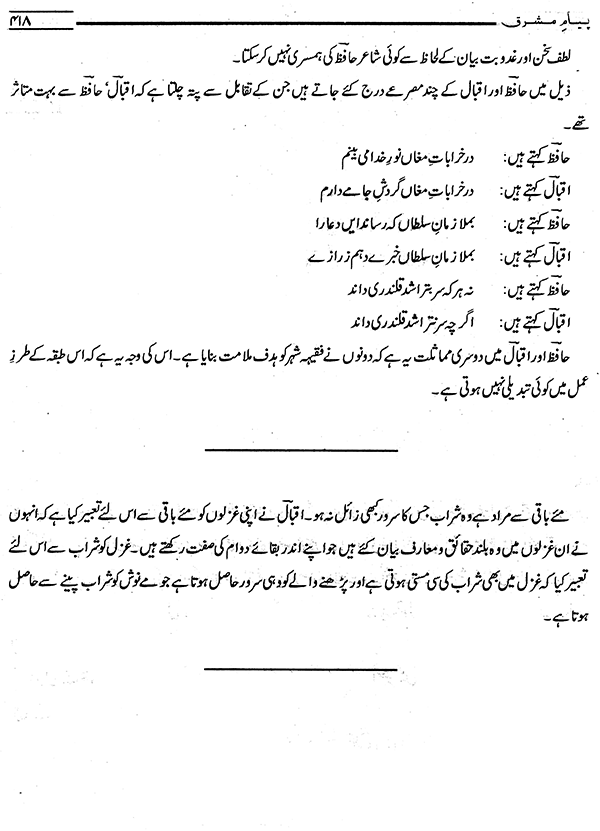 پیامِ مشرق ۴۱۸
لطف سخن اور عذوبت بیان کے لحاظ سے کوئی شاعر حافظؔ کی ہمسری نہیں کر سکتا۔
ذیل میں حافظؔ اور اقبال کے چند مصرعے درج کئے جاتے ہیں جن کے تقابل سے پتہ چلتا ہے کہ اقبالؔ، حافظؔ سے بہت متاثر
تھے۔
حافظؔ کہتے ہیں: در خراباتِ مغاں نورِ خدا می بینم
اقبالؔ کہتے ہیں: در خراباتِ مغاں گردشِ جامے دارم
حافظؔ کہتے ہیں: بملازمانِ سلطاں کہ رساند ایں دعا را
اقبالؔ کہتے ہیں: بملازمانِ سلطاں خبرے دہم ز رازے
حافظؔ کہتے ہیں: نہ ہر کہ سر بتراشد قلندری داند
اقبالؔ کہتے ہیں: اگرچہ سر نتراشد قلندری داند
حافظؔ اور اقبالؔ میں دوسری مماثلت یہ ہے کہ دونوں نے فقیہہ شہر کو ہدف ملامت بنایا ہے۔ اس کی وجہ یہ ہے کہ اس طبقہ کے طرزِ
عمل میں کوئی تبدیلی نہیں ہوتی ہے۔
مئے باقی سے مراد ہے وہ شراب جس کا سرور کبھی زائل نہ ہو۔ اقبالؔ نے اپنی غزلوں کو مئے باقی سے اس لئے تعبیر کیا ہے کہ انہوں
نے ان غزلوں میں وہ بلند حقائق و معارف بیان کئے ہیں جو اپنے اندر بقائے دوام کی صفت رکھتے ہیں۔ غزل کو شراب سے اس لئے
تعبیر کیا کہ غزل میں بھی شراب کی سی مستی ہوتی ہے اور پڑھنے والے کو وہی سرور حاصل ہوتا ہے جو مے نوش کو شراب پینے سے حاصل
ہوتا ہے۔